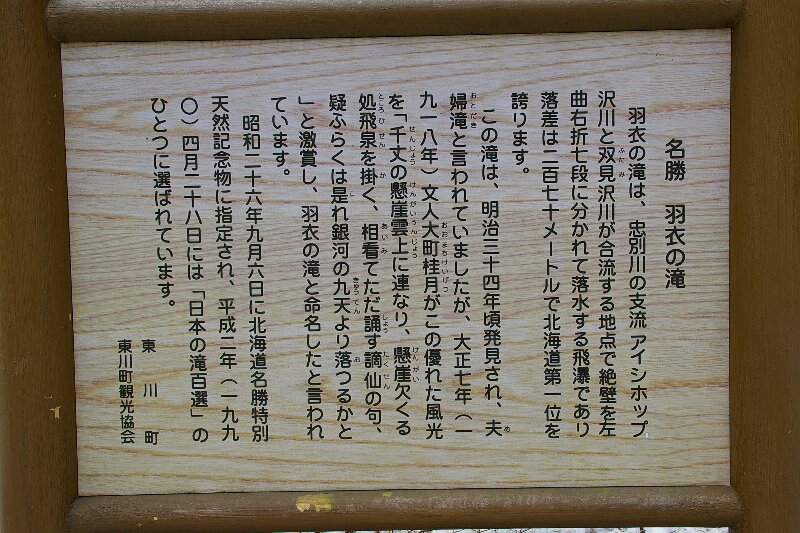 名勝　羽衣の滝
羽衣の滝は、忠別川の支流 アイシホップ
沢川と双見沢川が合流する地点で絶壁を左
曲右折七段に分かれて落水する飛瀑であり
落差は二百七十メートルで北海道第一位を
誇ります。
この滝は、明治三十四年頃発見され、夫
婦滝と言われていましたが、大正七年（一
九一八年）文人大町桂月がこの優れた風光
を「千丈の懸崖雲上に連なり、懸崖欠くる
処飛泉を掛く、相看てただ誦す謫仙の句、
疑ふらくは是れ銀河の九天より落つるかと
」と激賞し、羽衣の滝と命名したと言われ
ています。
昭和二十六年九月六日に北海道名勝特別
天然記念物に指定され、平成二年（一九九
〇）四月二十八日には「日本の滝百選」の
ひとつに選ばれています。
東川町
東川町観光協会